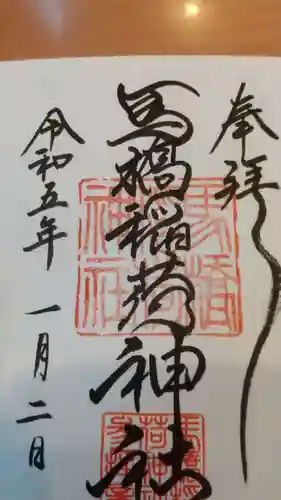 奉拝
馬橋稲荷神社
令和五年 一月二日